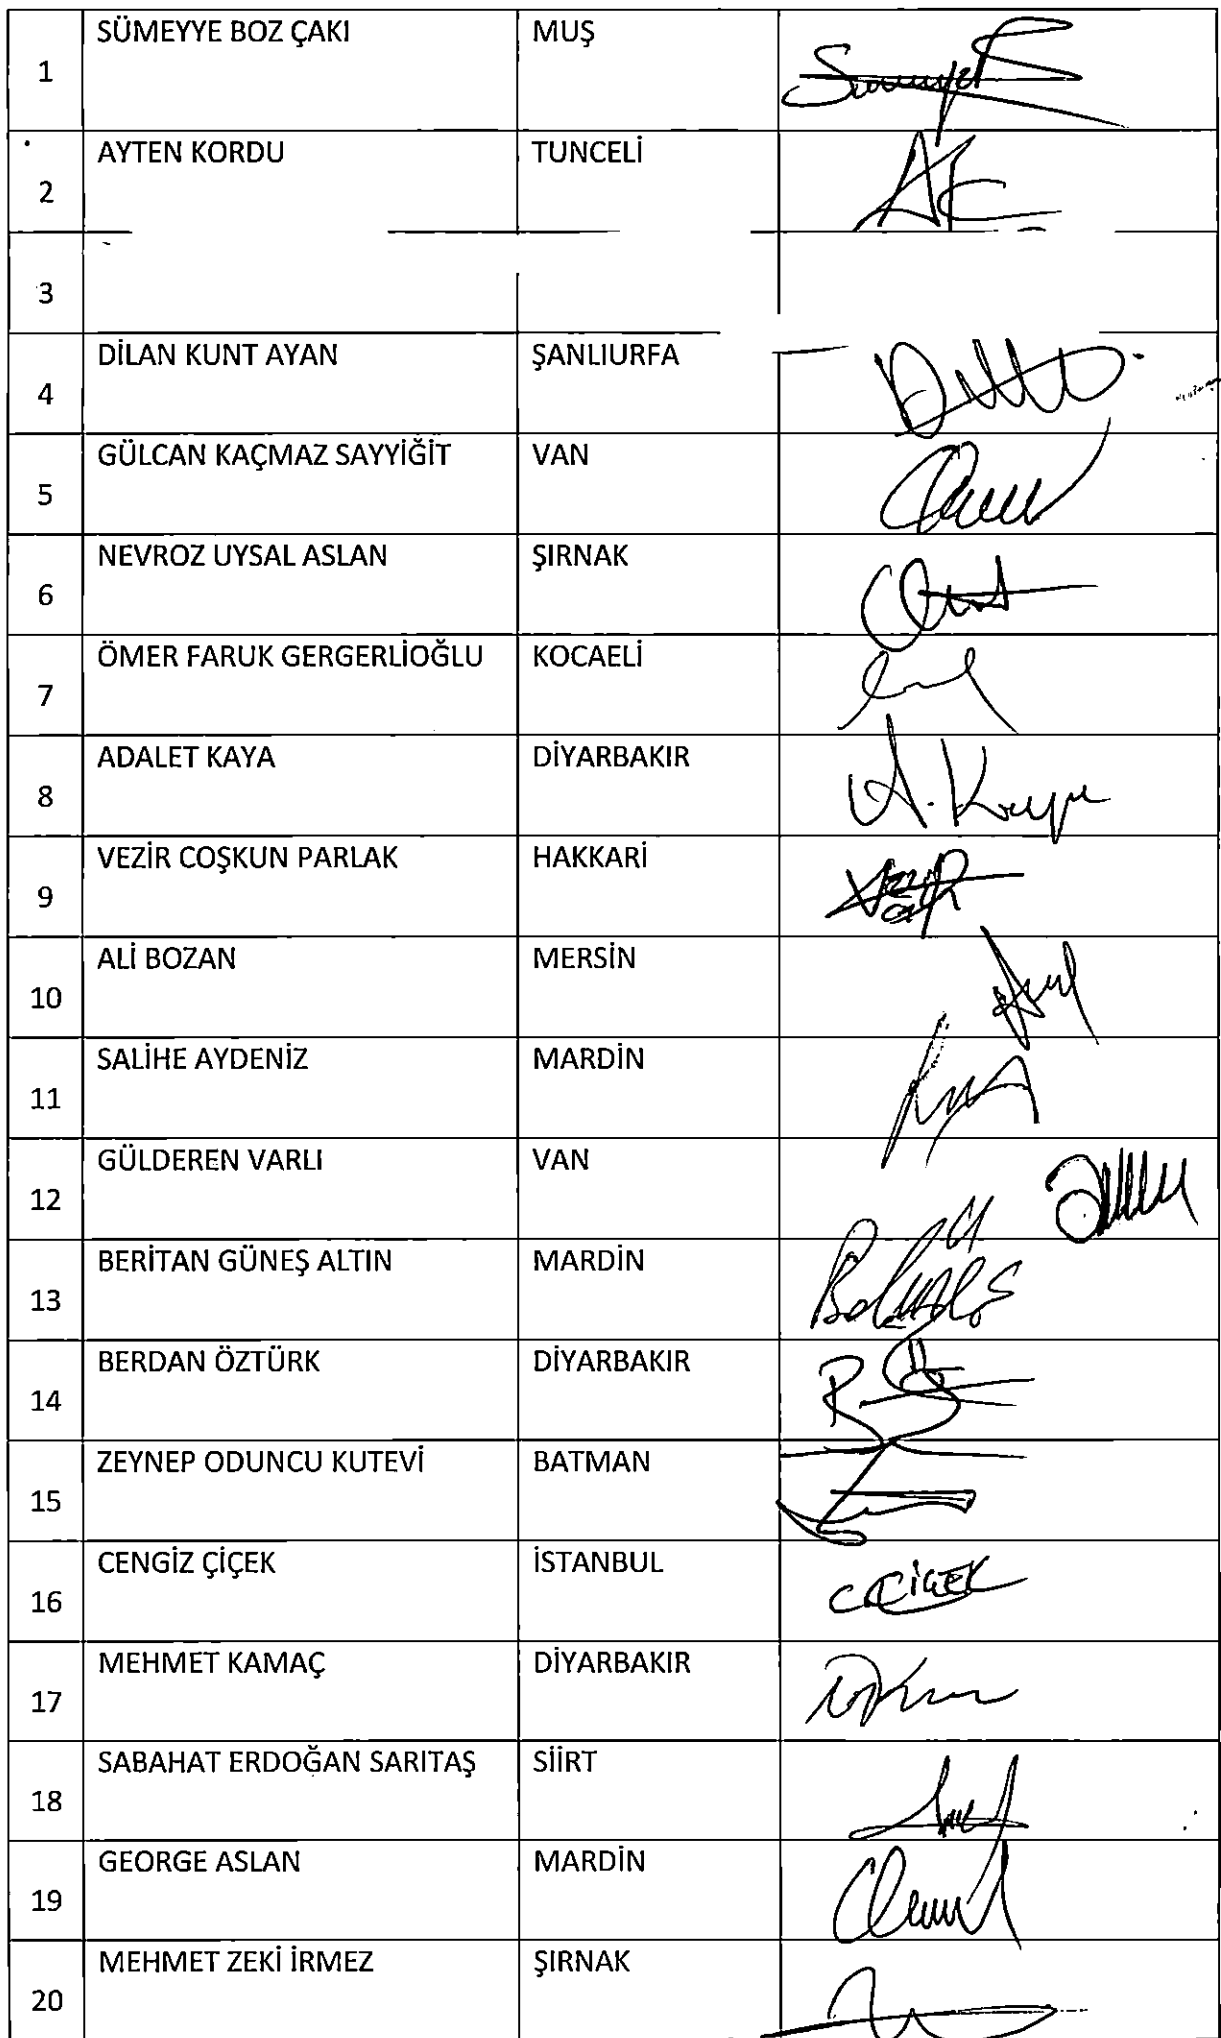 1 SÜMEYYE BOZ ÇAKI MUŞ
2 AYTEN KORDU TUNCELİ
3
4 DİLAN KUNT AYAN ŞANLIURFA
5 GÜLCAN KAÇMAZ SAYYİĞİT VAN
6 NEVROZ UYSAL ASLAN ŞIRNAK
7 ÖMER FARUK GERGERLİOĞLU KOCAELİ
8 ADALET KAYA DİYARBAKIR A. Kaya
9 VEZİR COŞKUN PARLAK HAKKARİ
10 ALİ BOZAN MERSİN
11 SALİHE AYDENİZ MARDİN
12 GÜLDEREN VARLI VAN
13 BERİTAN GÜNEŞ ALTIN MARDİN
14 BERDAN ÖZTÜRK DİYARBAKIR
15 ZEYNEP ODUNCU KUTEVİ BATMAN
16 CENGİZ ÇİÇEK İSTANBUL C ÇİÇEK
17 MEHMET KAMAÇ DİYARBAKIR
18 SABAHAT ERDOĞAN SARITAŞ SİİRT
19 GEORGE ASLAN MARDİN
20 MEHMET ZEKİ İRMEZ ŞIRNAK